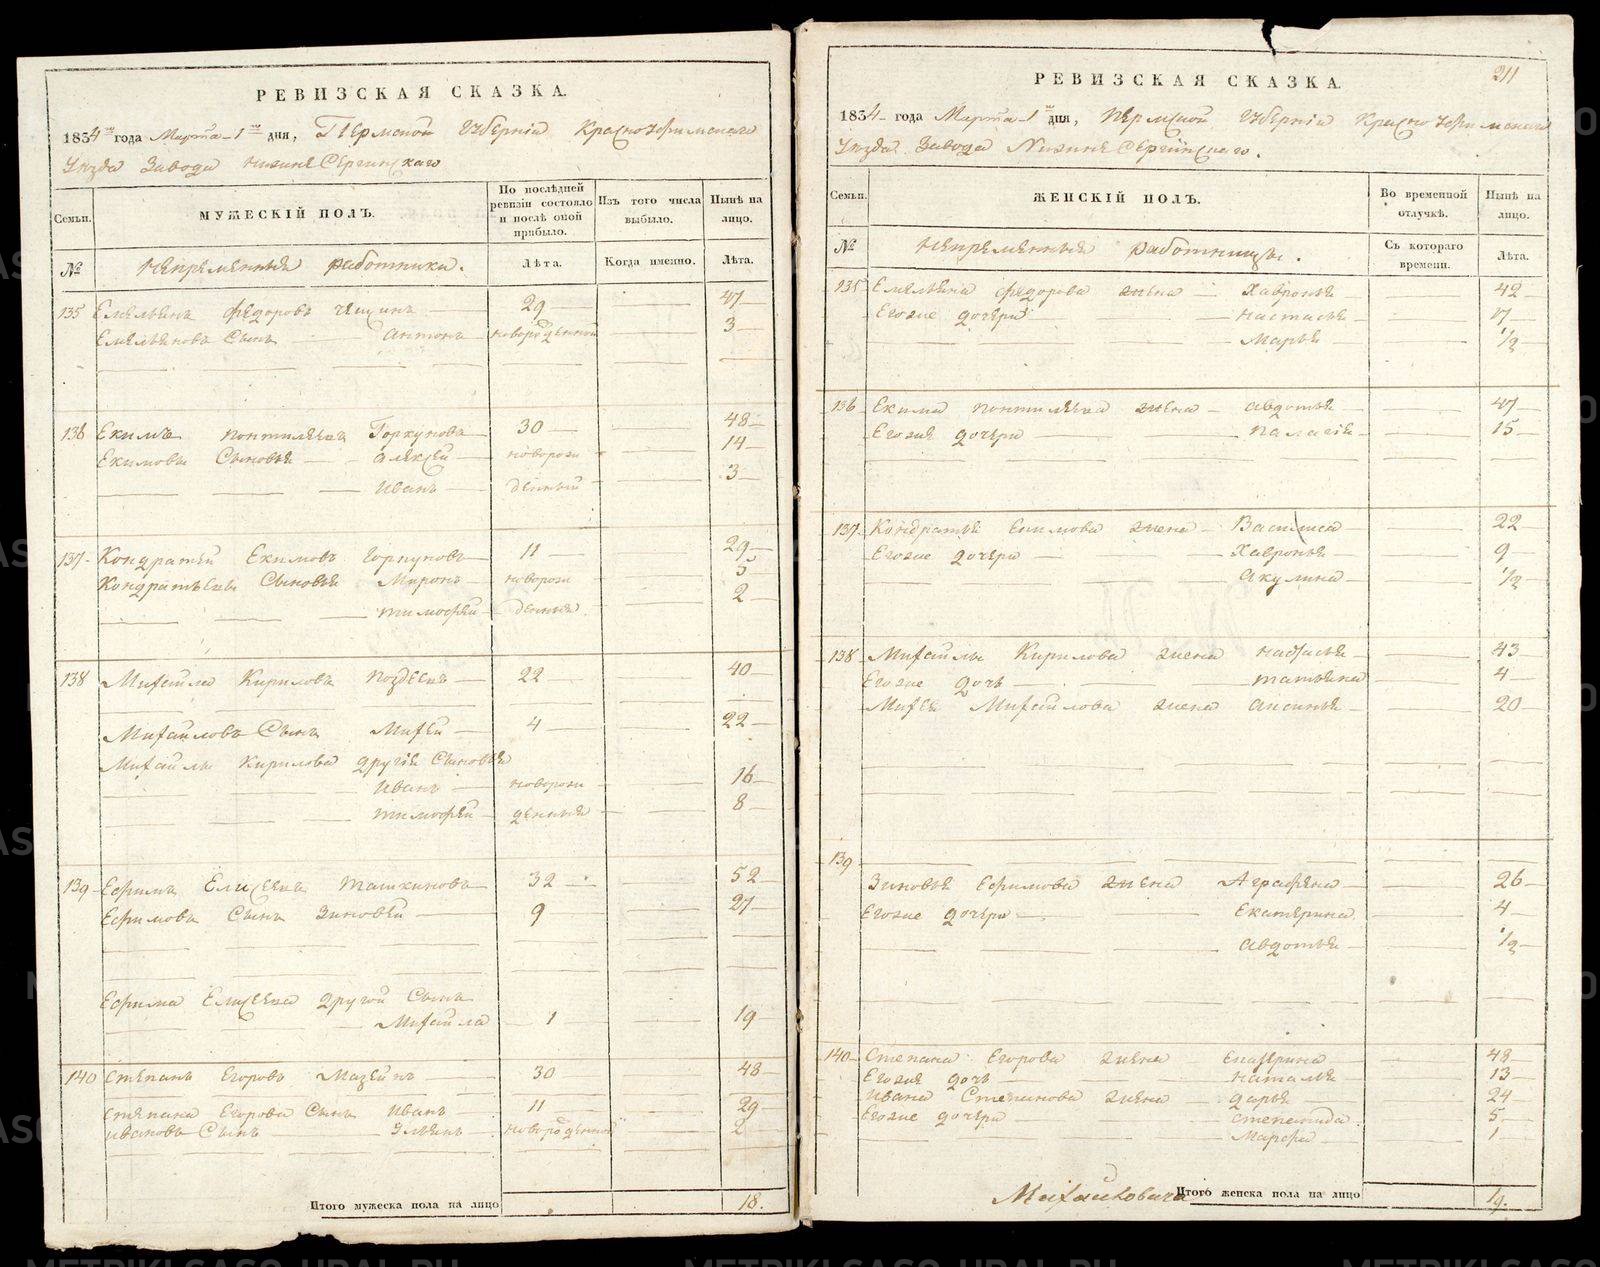 РЕВИЗСКАЯ СКАЗКА.
1834го года Марта 1го дня, Пермской Губернiи Красноуфимскаго
Уезда Завода Нижне Сергинскаго
Семьи. МУЖЕСКIЙ ПОЛЪ. По послѣдней ревизiи состояло и послѣ оной прибыло. Изъ того числа выбыло. Нынѣ на лицо.
№ Непременныя работники. Лѣта. Когда именно. Лѣта.
135 Емельянъ Федоровъ 29 47
Емельяновъ Сынъ Антонъ новорожденной 3
136 Екимъ Понтилѣевъ Горкуновъ 30 48
Екимовы Сыновья Алексей новорож 14
Иванъ денныя 3
137 Кондратей Екимовъ Горкуновъ 11 29
Кондратьевы Сыновья Миронъ новорож 5
Тимофей денныя 2
138 Михайла Кириловъ Поздеевъ 22 40
Михайловъ Сынъ Михей 4 22
Михайлы Кирилова другiя Сыновья
Иванъ новорож 16
Тимофей денныя 8
139 Ефимъ Елисеевъ Ташкиновъ 32 52
Ефимовъ Сынъ Зиновей 9 27
Ефима Елисеева другой Сынъ
Михайла 1 19
140 Степанъ Егоровъ Мазеинъ 30 48
Степана Егорова Сынъ Иванъ 11 29
Ивановъ Сынъ Ульянъ новорожденной 2
Итого мужеска пола на лицо 18.
211
РЕВИЗСКАЯ СКАЗКА.
1834 года Марта 1го дня, Пермской Губернiи Красноуфимскаго
Уезда Завода Нижне Сергинскаго.
Семьи. ЖЕНСКIЙ ПОЛЪ. Во временной отлучкѣ. Нынѣ на лицо.
№ Непременныя работницы. Съ котораго времени. Лѣта.
135 Емельяна Федорова жена Хавронья 42
Егоже дочери Настасья 7
Марья 1/2
136 Екима Понтилѣева жена Авдотья 47
Егоже дочери Палагiя 15
137 Кондратья Екимова жена Василиса 22
Егоже дочери Хавронья 9
Акулина 1/2
138 Михайлы Кирилова жена 43
Егоже дочь Татьяна 4
Михея Михайлова жена Аксинья 20
139
Зиновья Ефимова жена Аграфена 26
Егоже дочери Екатерина 4
Авдотья 1/2
140 Степана Егорова жена Екатерина 48
Егоже дочь Наталья 13
Ивана Степанова жена Дарья 24
Егоже дочери Степанида 5
Марфа 1
Итого женска пола на лицо 19.
METRIKI.GASO-URAL.RU